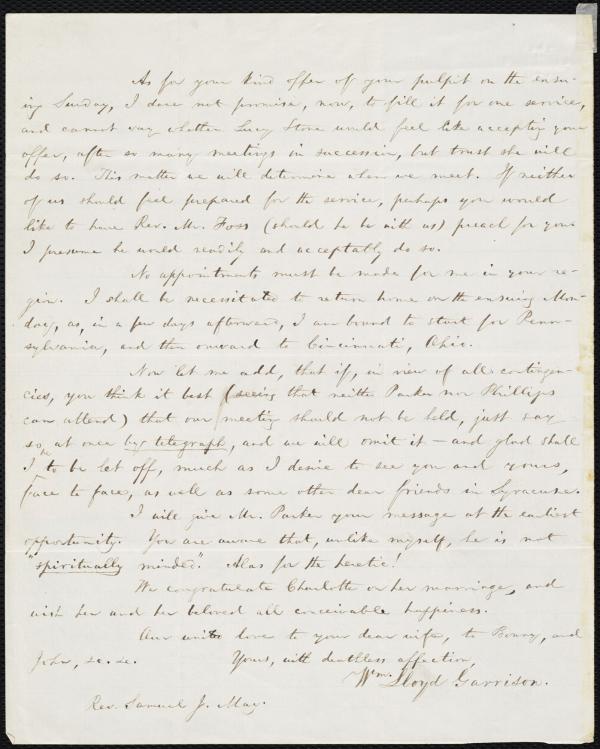 As for your kind offer of your pulpit on the ensu-
ing Sunday, I dare not promise, now, to fill it for one service,
and cannot say whether Lucy Stone would feel like accepting your
offer, after so many meetings in succession, but trust she will
do so. This matter we will determine when we meet. If neither
of us should feel prepared for the service, perhaps you would
like to have Rev. Mr. Foss (should he be with us) preach for you.
I presume he would readily and acceptably do so.
No appointments must be made for me in your re-
gion. I shall be necessitated to return home on the ensuing Mon-
day, as, in a few days afterward, I am bound to start for Penn-
sylvania, and then onward to Cincinnati, Ohio.
Now let me add, that if, in view of all contingen-
cies, you think it best (seeing that neither Parker nor Phillips
can attend) that our meeting should not be held, just say
so, at once by telegraph, and we will omit it – and glad shall
I be to be let off, much as I desire to see you and yours,
face to face, as well as some other dear friends in Syracuse.
I will give Mr. Parker your message at the earliest
opportunity. You are aware that, unlike myself, he is not
"spiritually minded". Alas for the heretic!
We congratulate Charlotte on her marriage, and
wish her and her beloved all conceivable happiness.
Our united love to your dear wife, to Bonny, and
John, &c. &c. Yours, with deathless affection,
Wm. Lloyd Garrison.
Rev. Samuel J. May.